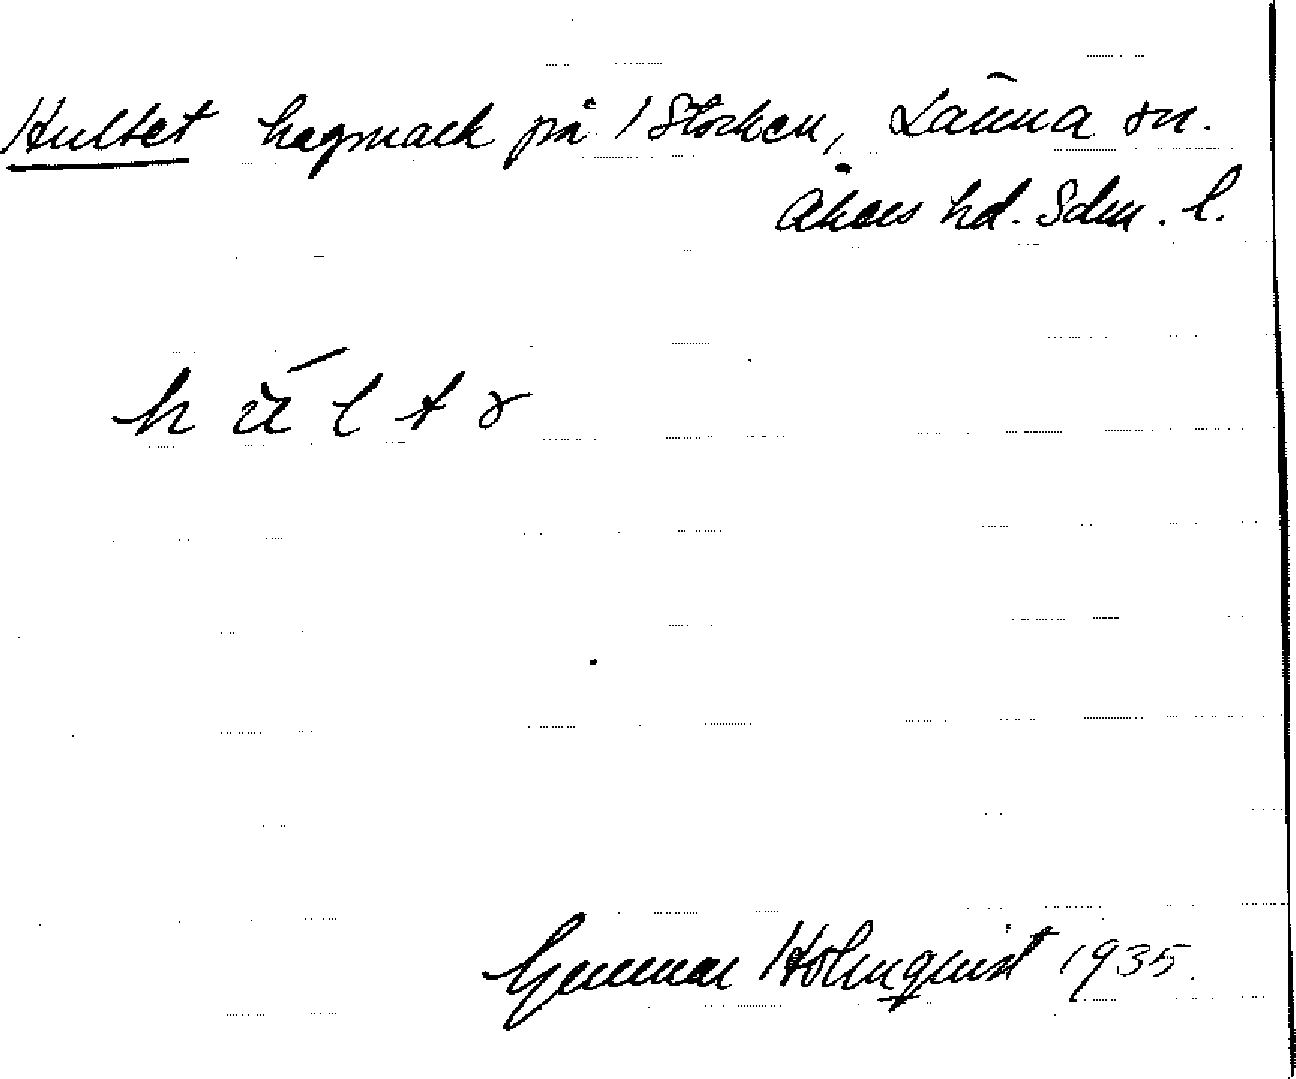 Hultet hagmark på 1 Storken, Länna sn.
Åkers hd. Sdm. l.
Gunnar Holmquist 1935.